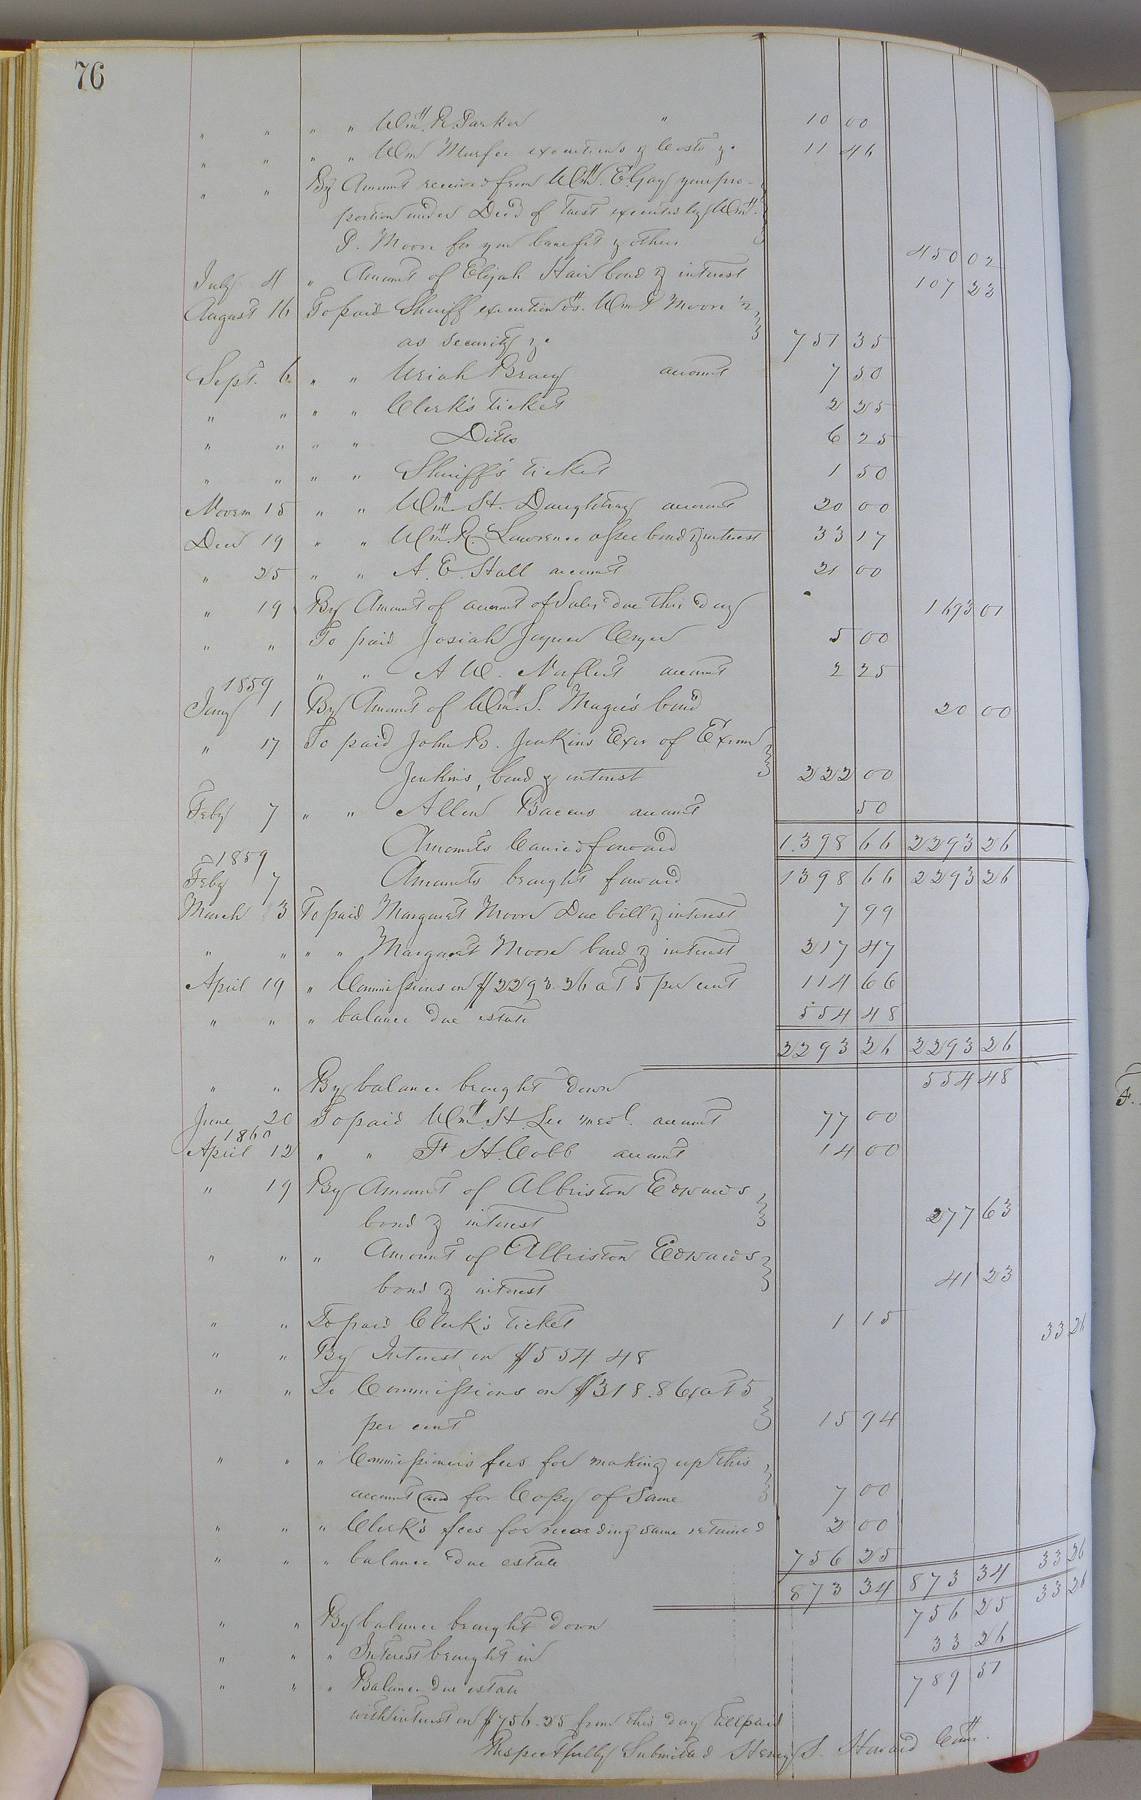 76
" " " " Wm. R. Parker " 10 00
" " " " Wm Murfee executions & Costs &c 11 46
" " By Amount received from Wm. E. Gay your pro-
portion under Deed of Trust executed by Wm.
P. Moore for your benefit & others 450 02
July 4 " Amount of Elijah Hair bond & interest 107 23
August 16 To paid Sheriff execution vs. Wm P Moore &
as Security &c 751 35
Sept. 6 " " Uriah Bracy account 7 50
" " " " Clerk's Ticket 2 25
" " " " Ditto 6 25
" " " " Sheriff's ticket 1 50
Novem 15 " " Wm H. Daughtrey account 20 00
Decr 19 " " Wm. R Lawrence bond & interest 33 17
" 25 " " A. E. Hall account 21 00
" 19 By Amount of account of Sales due this day 1693 01
" " To paid Josiah Joyner Cryer 5 00
" " " " A W. Norfleet account 2 25
1859
Jany 1 By Amount of Wm. S. Magee's bond 20 00
" 17 To paid John B. Jenkins Exer of Exum
Jenkins, bond & interest 222 00
Feby 7 " " Allen account 50
Amounts Carried forward 1.398 66 2293 26
1859
Feby 7 Amounts brought forward 1398 66 2293 26
March 3 To paid Margaret Moore Due bill & interest 7 99
" " " " Margaret Moore bond & interest 217 47
April 19 " Commissions on $2293.26 at 5 per cent 114 66
" " " balance due estate 554 48
2293 26 2293 26
" " By balance brought down 554 48
June 20 To paid Wm. H Lee med. account 77 00
1860
April 12 " " F. H. Cobb account 14 00
" 19 By Amount of Albriston Edwards
bond & interest 277 63
" " " Amount of Albriston Edwards
bond & interest 41 23
" " To paid Clerk's Ticket 1 15
" " By Interest on $554 48 33 26
" " To Commissions on $318.86 at 5
per cent 15 94
" " " Commissioner's fees for making up this
account and for Copy of Same 7 00
" " " Clerk's fees for recording same retained 2 00
" " " balance due estate 756 25 33 26
873 34 873 34 33 26
" " By balance brought down 756 25
" " " Interest brought in 33 26
" " " Balance due estate 789 51
with interest on $756.25 from this day till paid
Respectfully Submitted Henry S. Howard Comr.